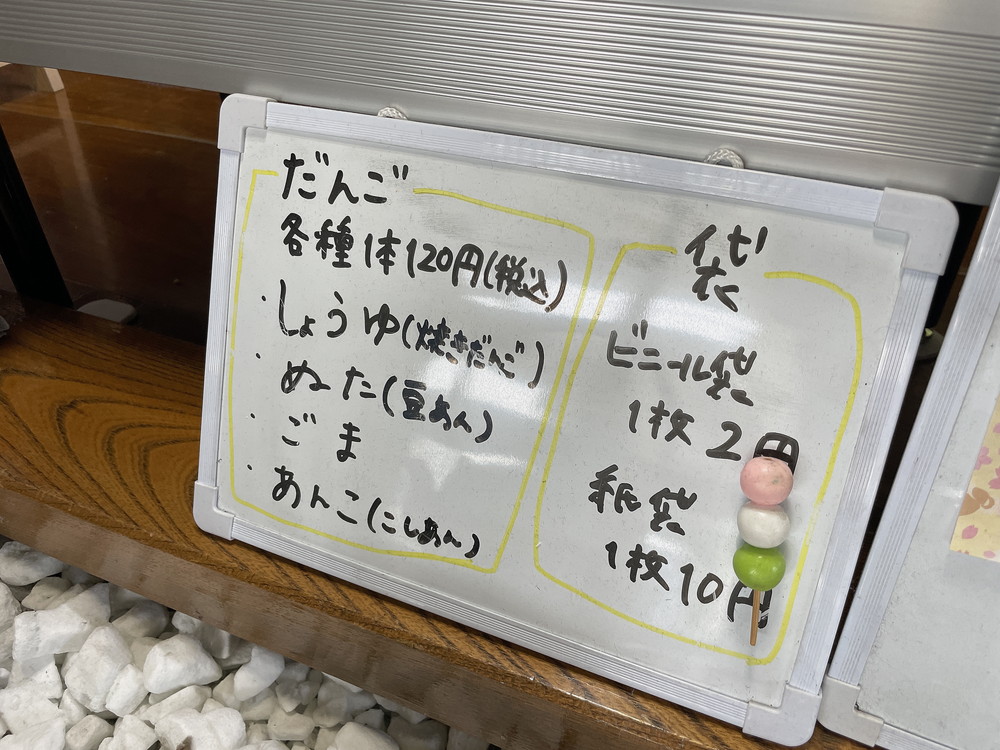 だんご
各種1本120円(税込)
・しょうゆ(焼きだんご)
・ぬた(豆あん)
・ごま
・あんこ(こしあん)
袋
ビニール袋
1枚2円
紙袋
1枚10円